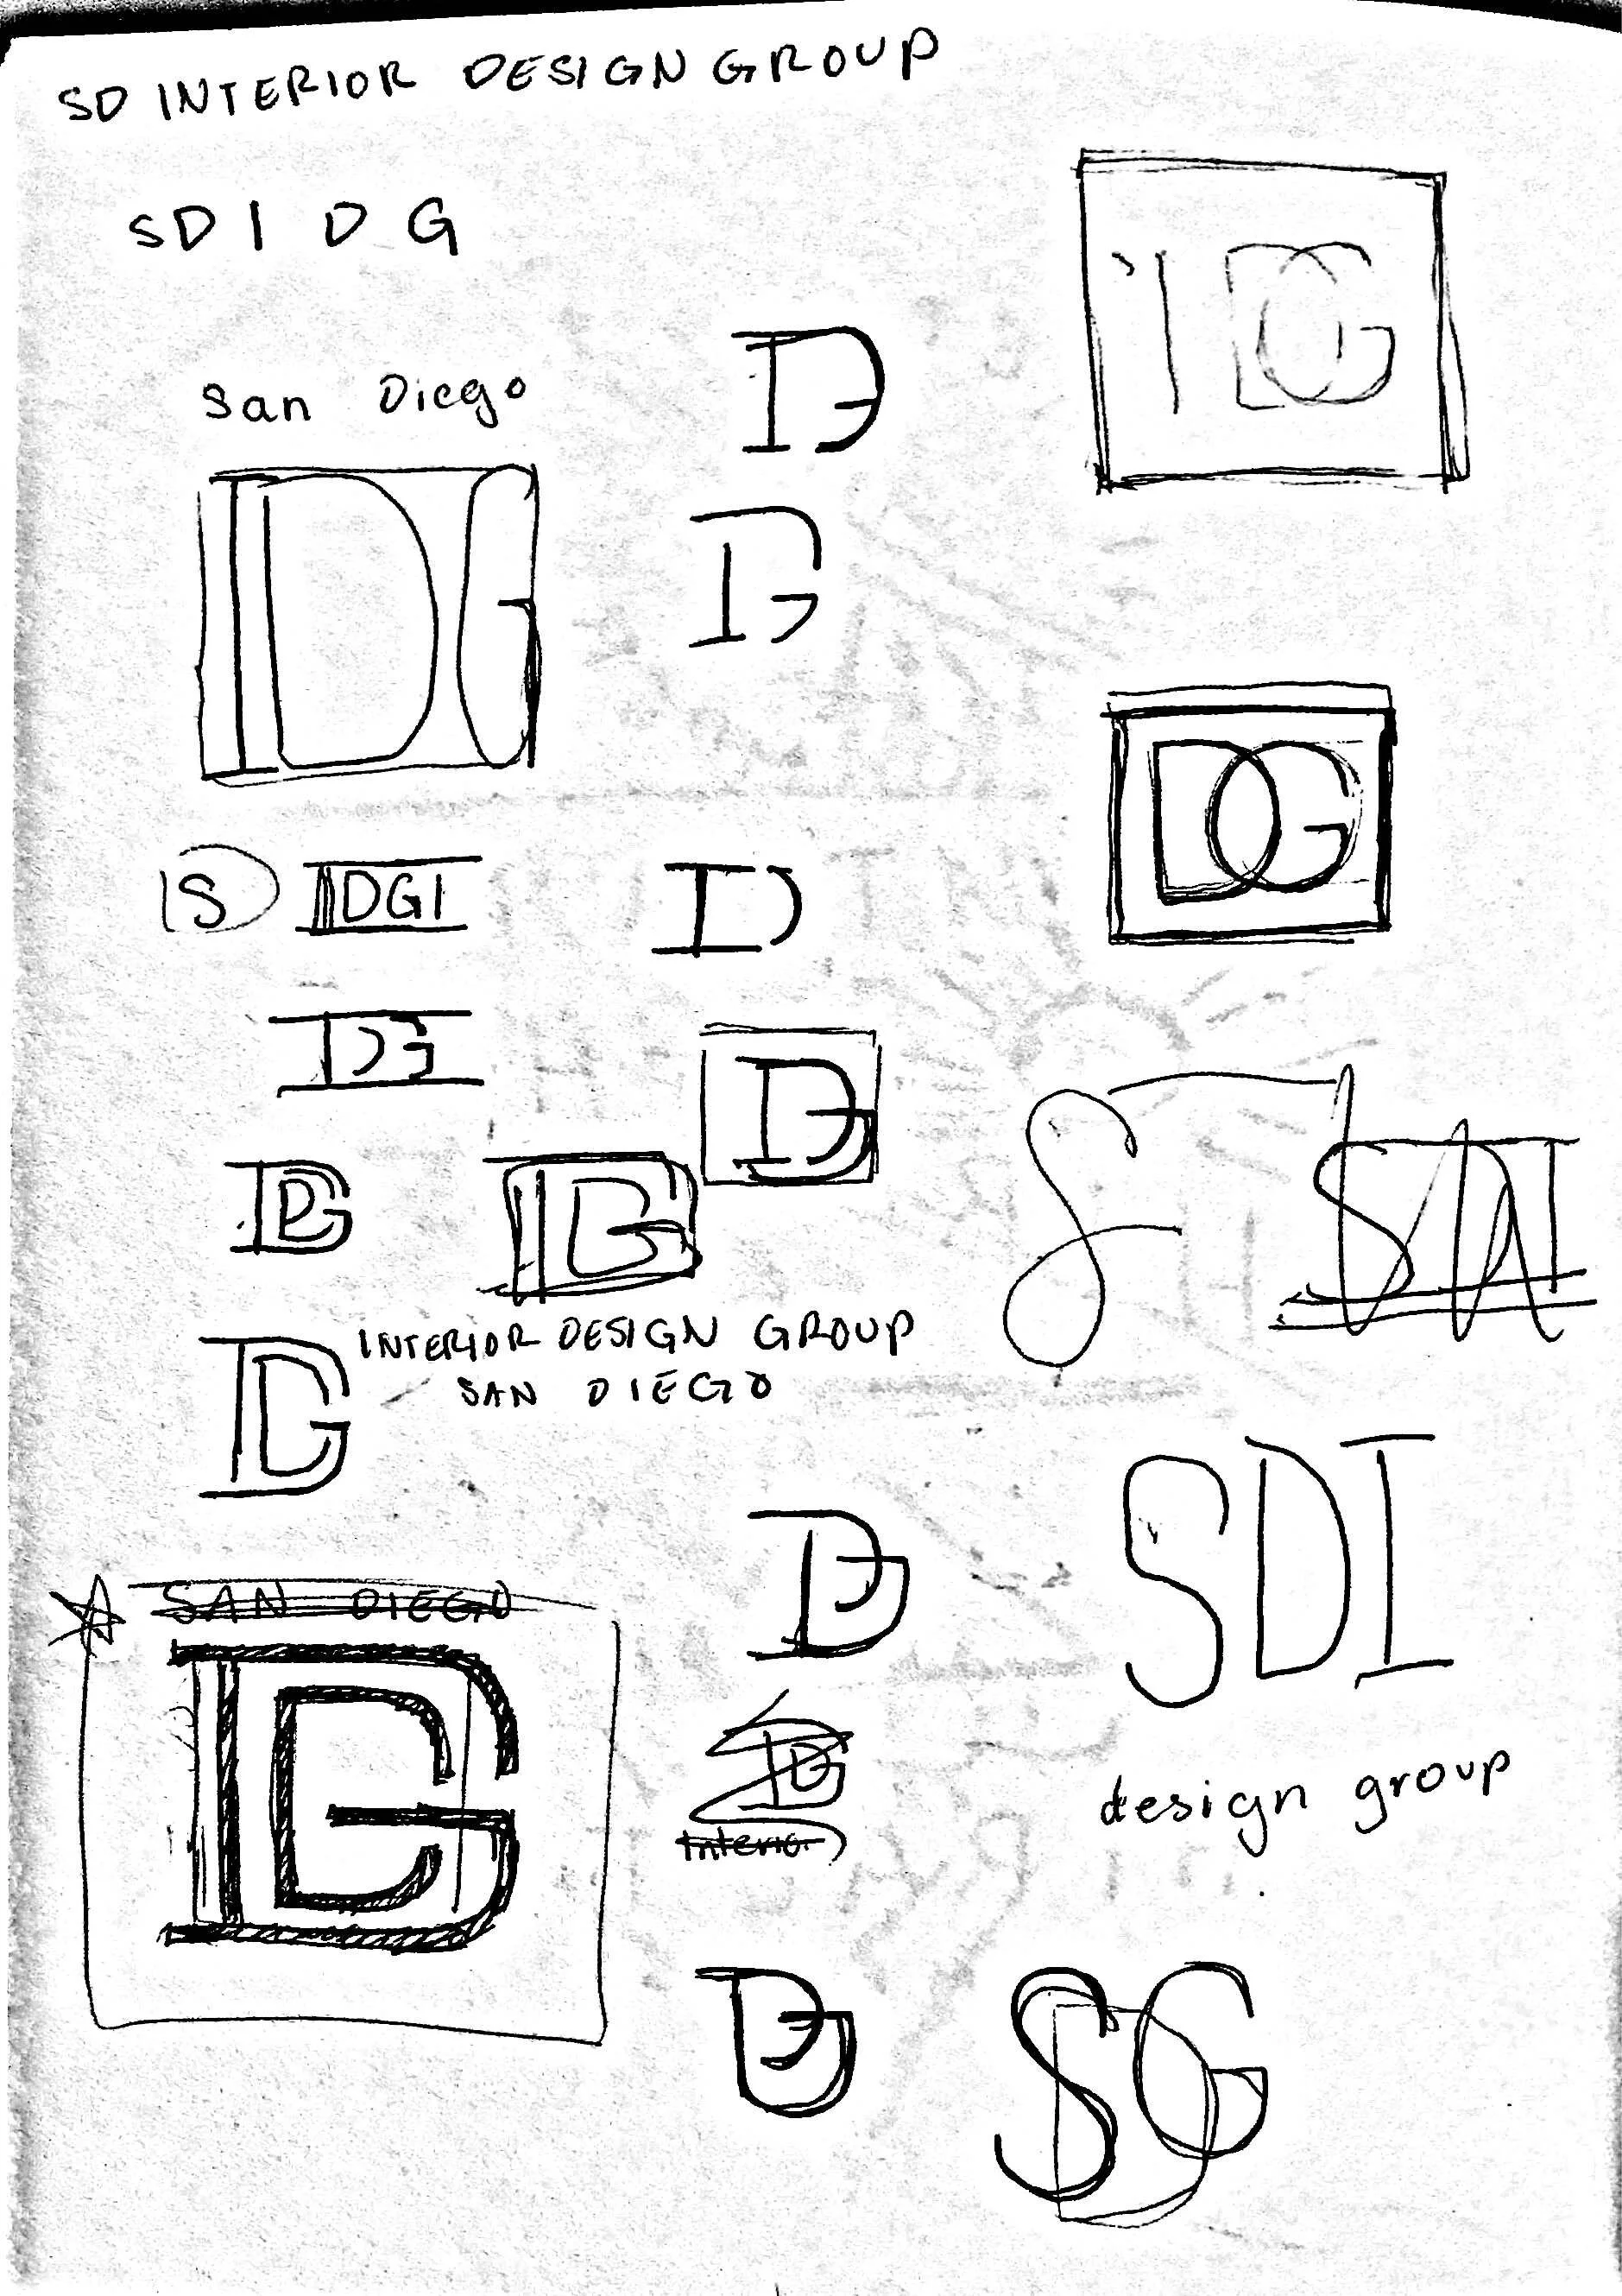 SD INTERIOR DESIGN GROUP
SDIDG
San Diego
IDG
IDG
DG
S
IDGI
ID
IDG
INTERIOR DESIGN GROUP
SAN DIEGO
SAN DIEGO
SDI
design group
Interior
SDG